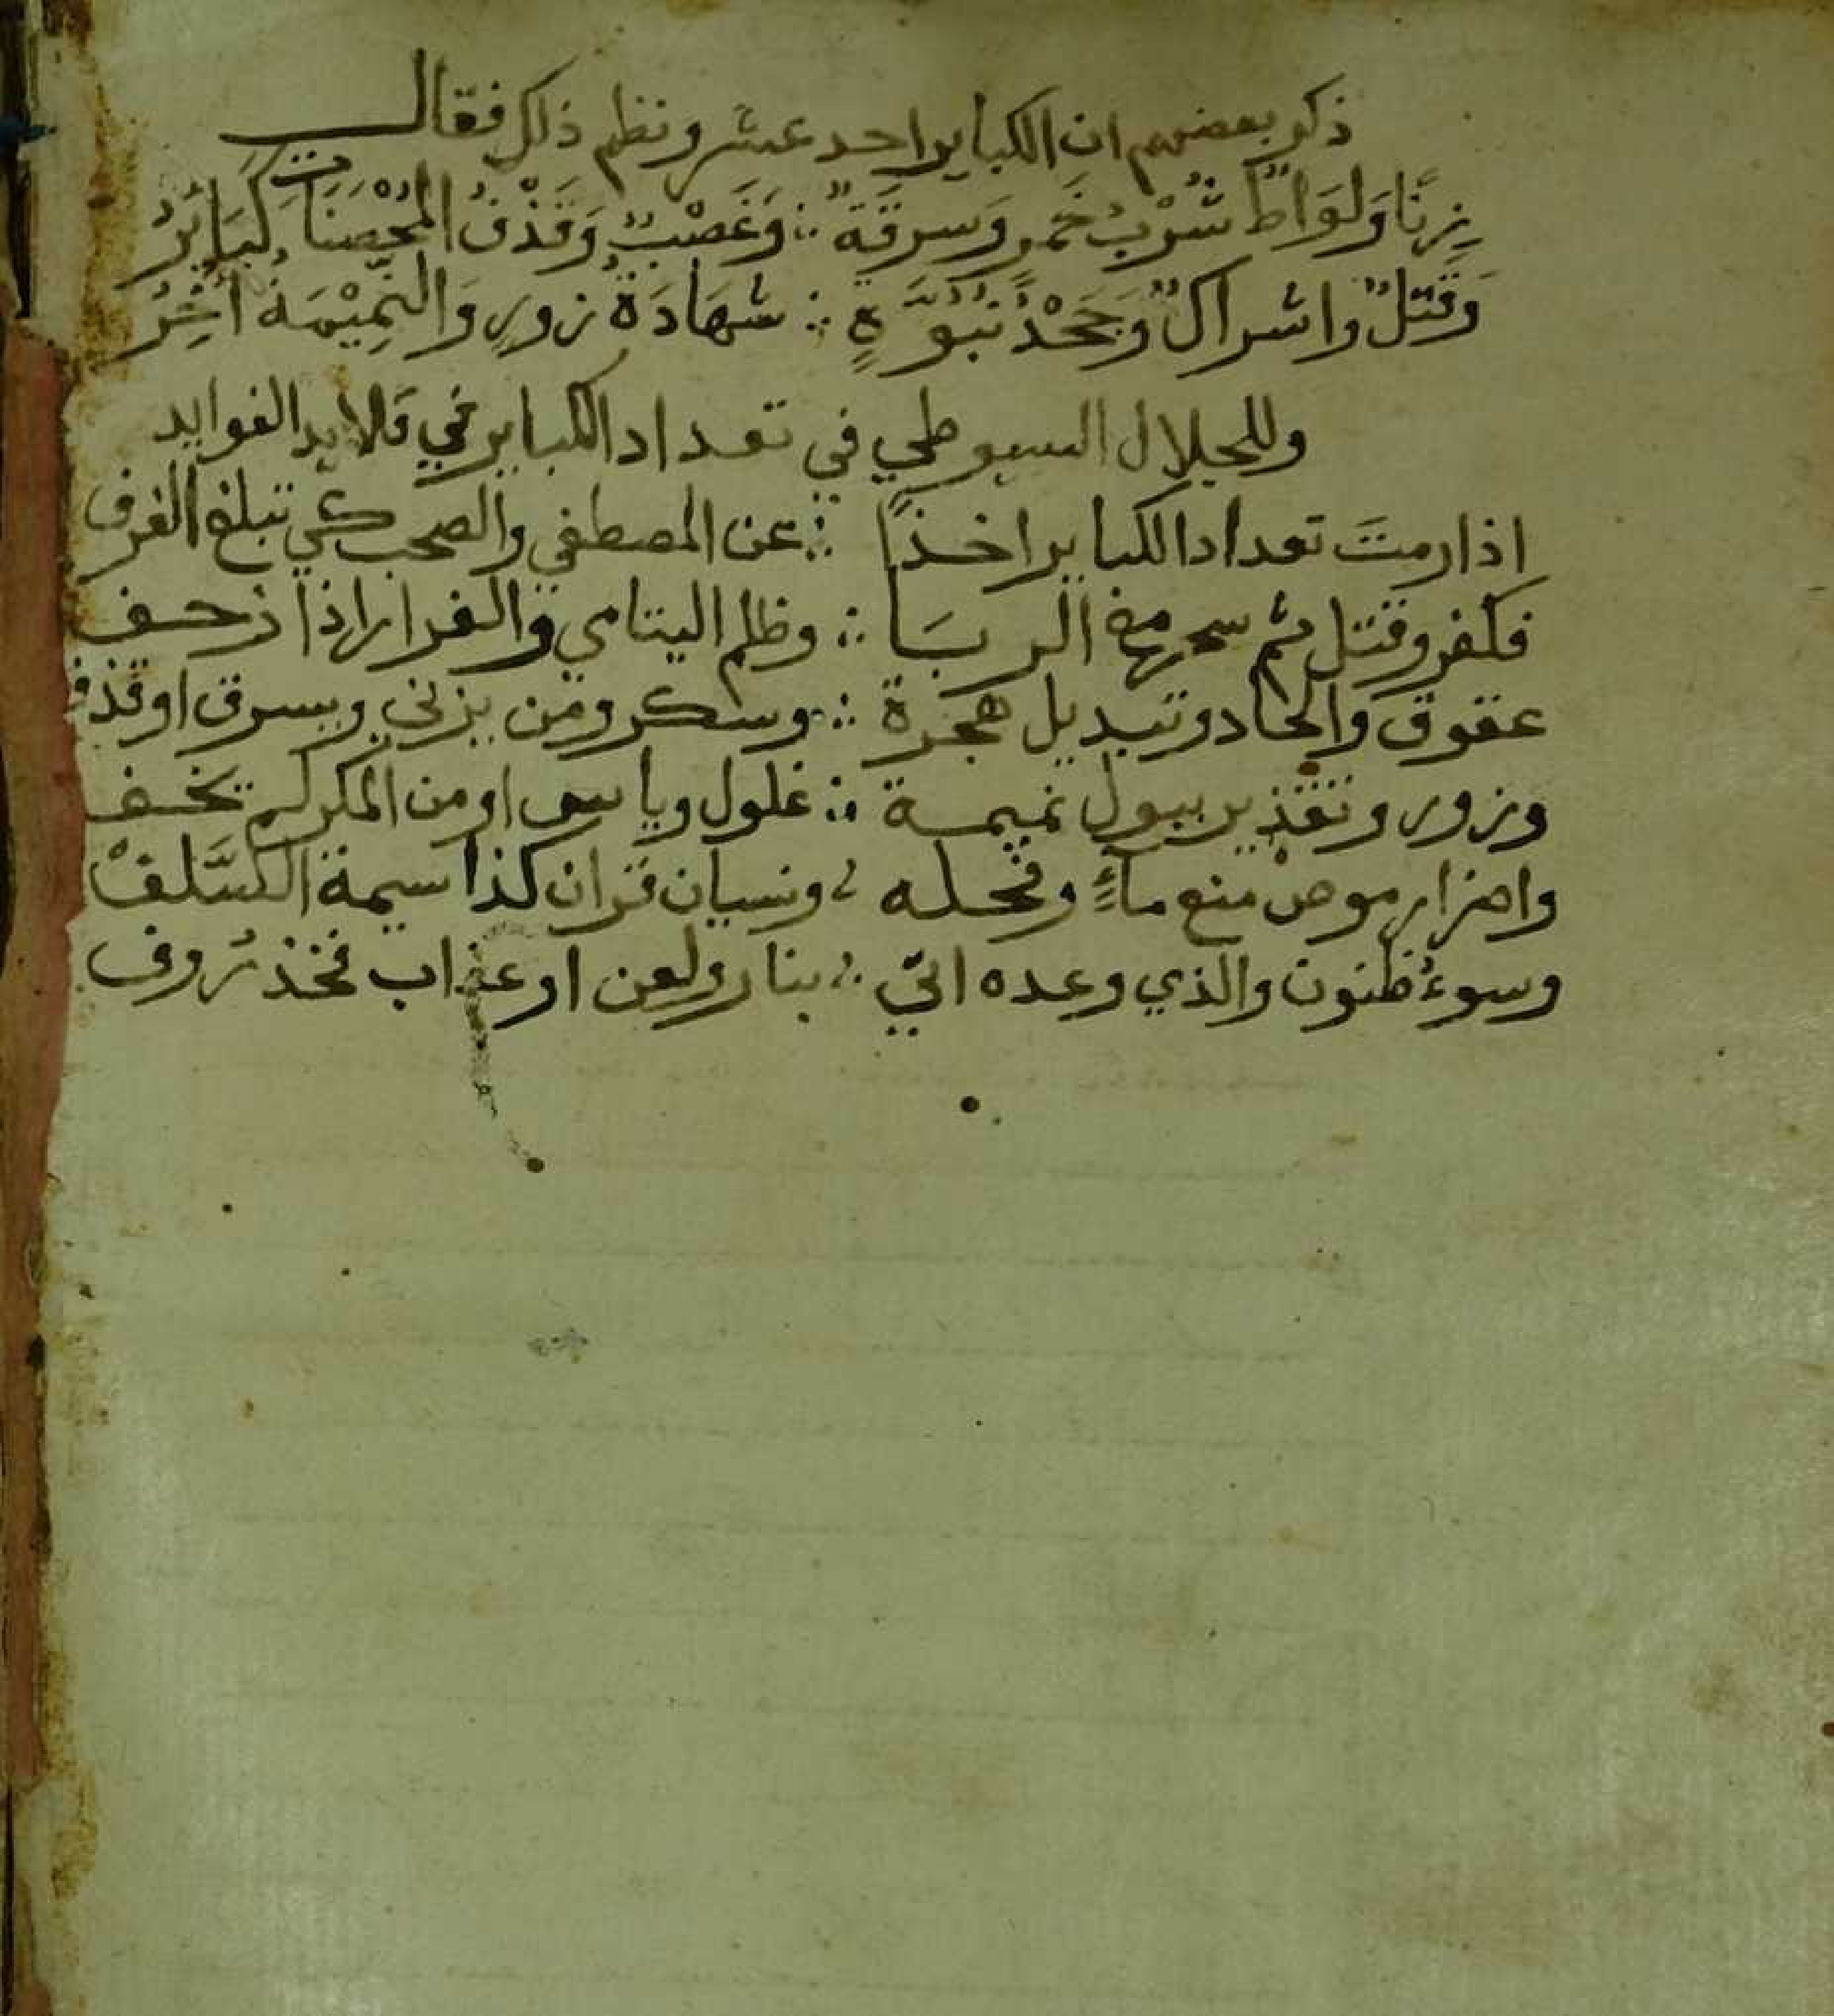 ذكر بعضهم ان الكباير احد عشر ونظم ذلك فقال
زِنًا وَلوَاطٌ شُرْبُ خَمرٍ وَسرقَةٌ ∴ وَغَصْبٌ وَقَذْفُ المُحْصَنَاتِ كَبَايَرُ
وَقَتلٌ واشراكٌ وَجَحْدُ نُبُوَّةٍ ∴ شهَادَةُ زورٍ وَالنَّمِيْمَةُ اخِرُ
وللجلال السيوطي في تعداد الكباير في قلايد الفوايد
اذا رمتَ تعداد الكباير اخذًا ∴ عن المصطفى والصحب كي تبلغ الغرف
فكفر وقتل ثم سحر مع الربَا ∴ وظلم اليتامي والفرار اذا زحف
عقوق والحاد وتبديل هجرة ∴ وسكر ومن يزني ويسرق او قذف
وزور وتقذير ببول نميمة ∴ غلول وياس او من المكر لم يخف
واضرار موصٍ منع ماءٍ وفحله ∴ ونسيان قران كذا سيمة السَّلفْ
وسوءُ ظنون والذي وعده اتي ∴ بنار ولعن او عذاب فخذ